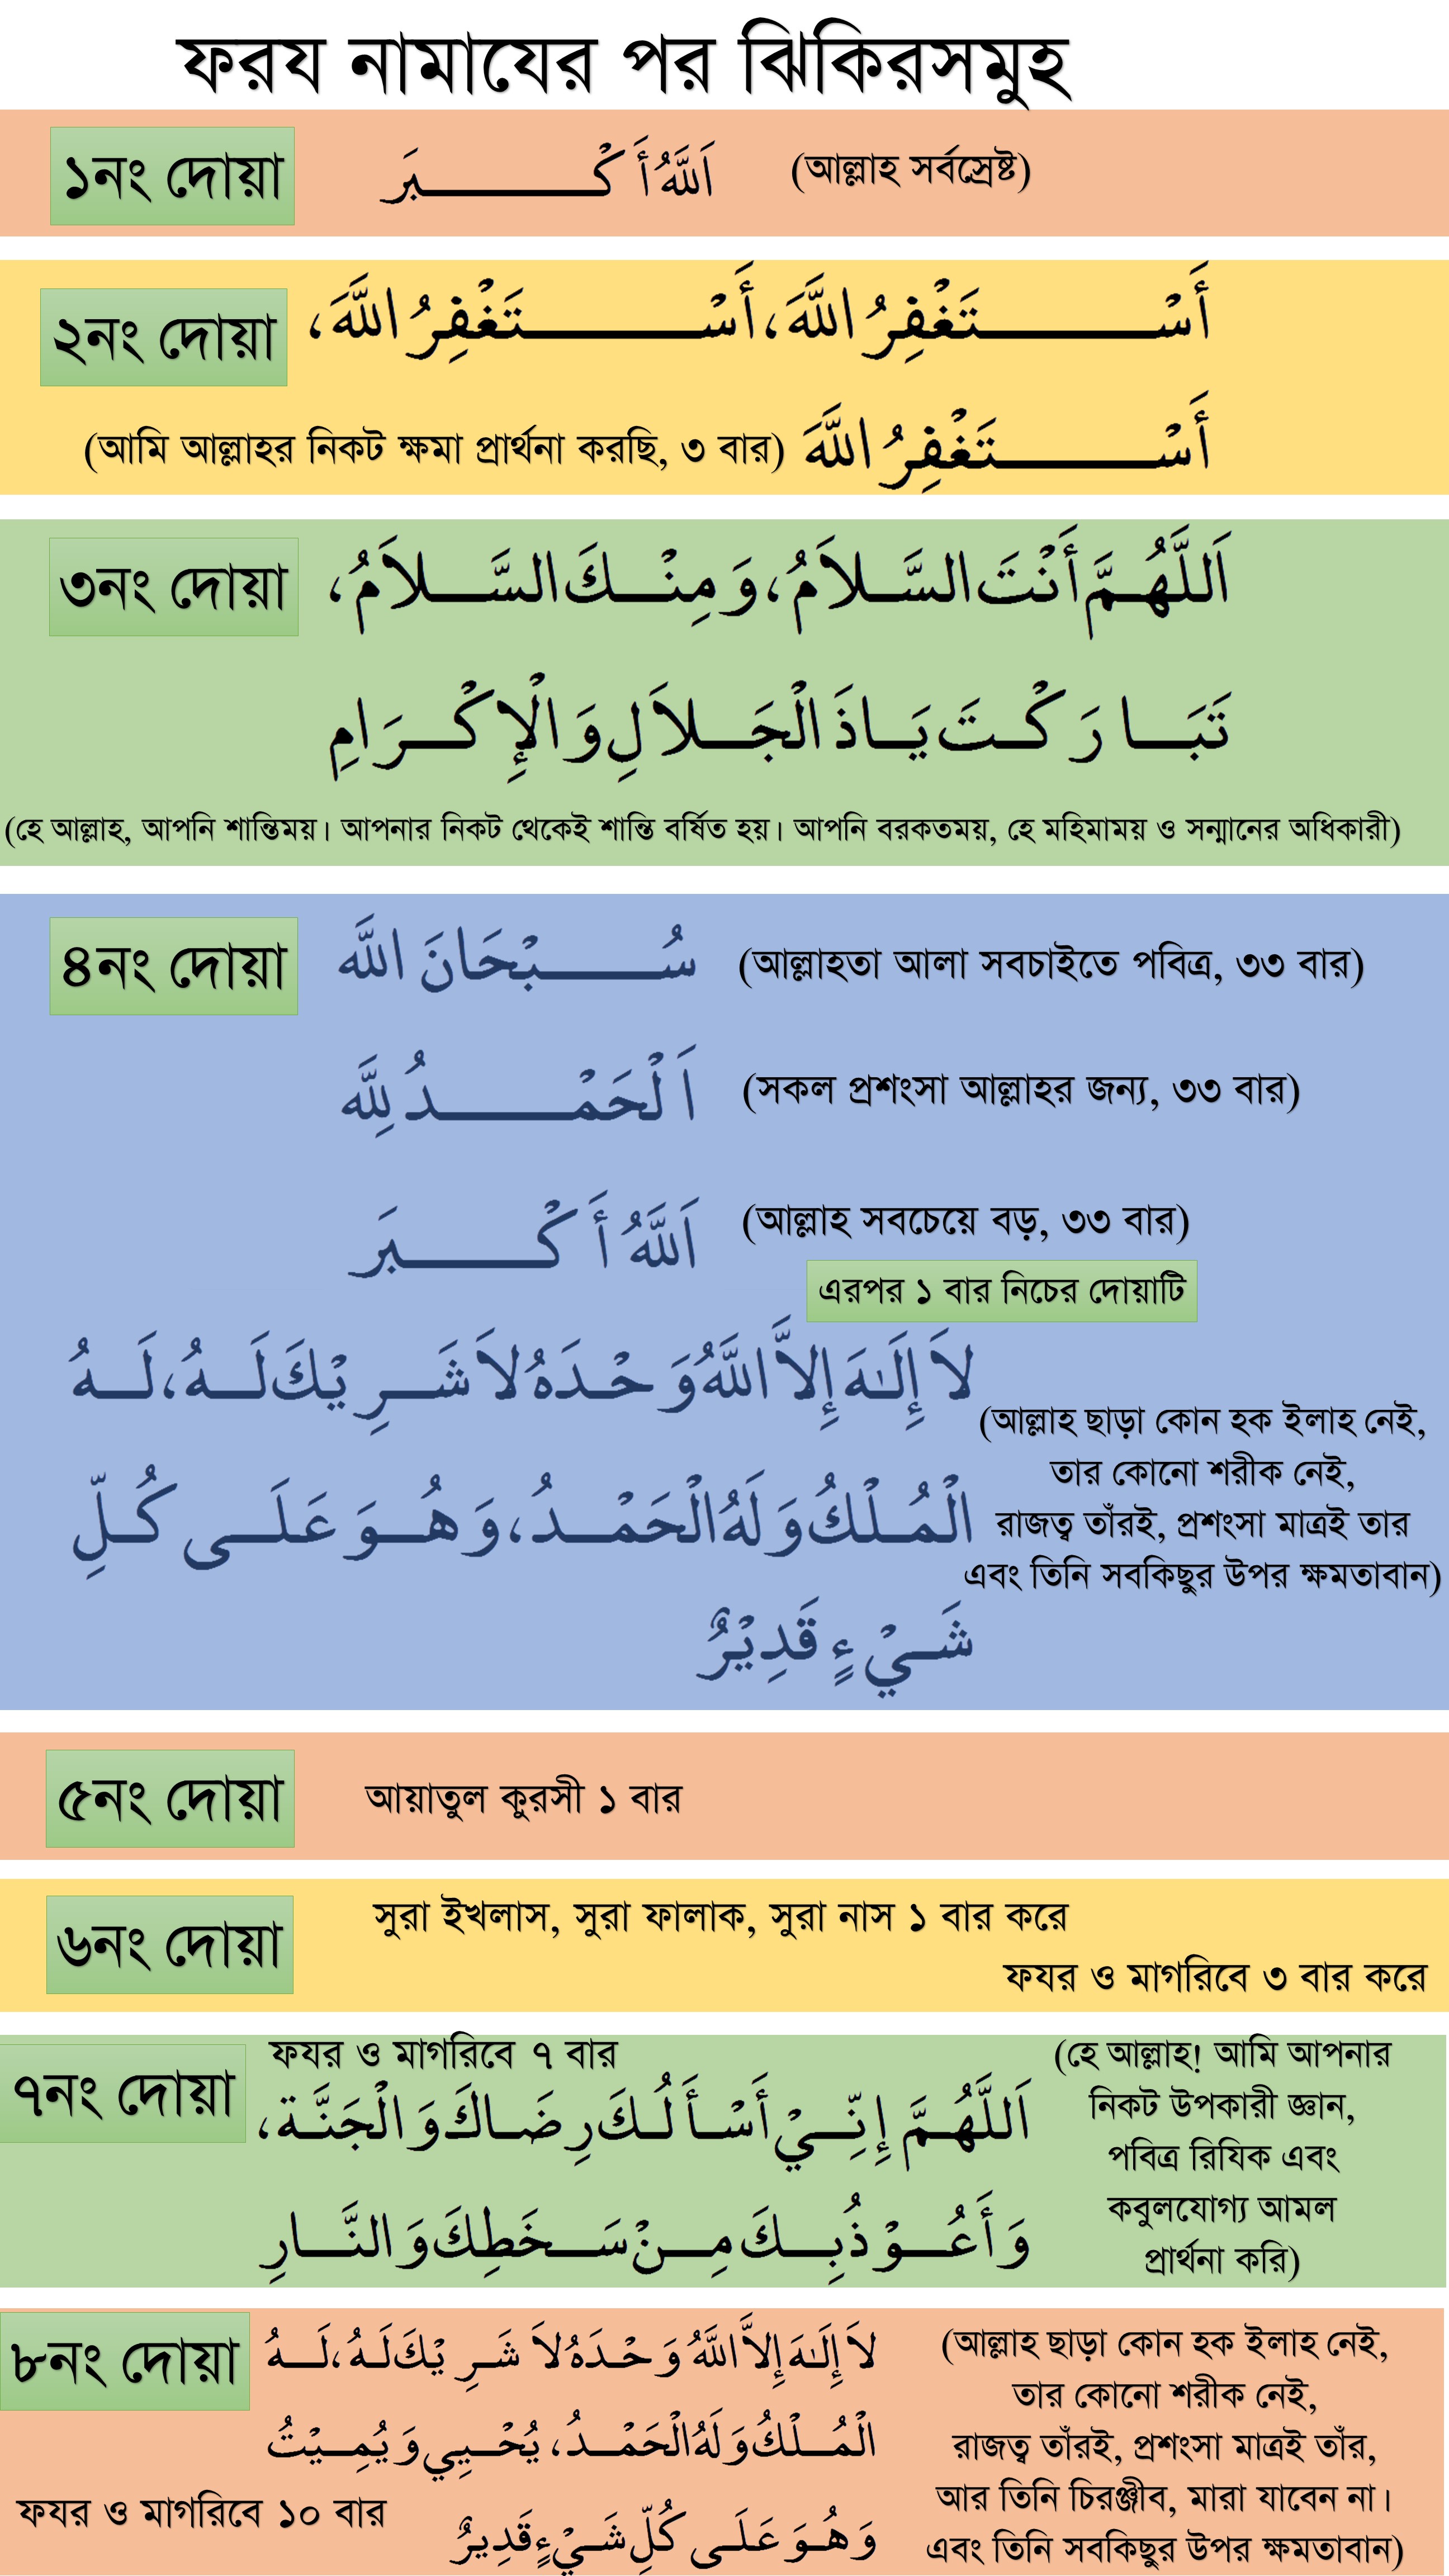 ফরয নামাযের পর ঝিকিরসমুহ
১নং দোয়া
اَللَّهُ أَكْبَرَ
(আল্লাহ সর্বস্রেষ্ট)
২নং দোয়া
أَسْتَغْفِرُ اللَّهَ، أَسْتَغْفِرُ اللَّهَ،
أَسْتَغْفِرُ اللَّهَ
(আমি আল্লাহর নিকট ক্ষমা প্রার্থনা করছি, ৩ বার)
৩নং দোয়া
اَللَّهُمَّ أَنْتَ السَّلاَمُ، وَمِنْكَ السَّلاَمُ،
تَبَارَكْتَ يَاذَ الْجَلاَلِ وَالْإِكْرَامِ
(হে আল্লাহ, আপনি শান্তিময়। আপনার নিকট থেকেই শান্তি বর্ষিত হয়। আপনি বরকতময়, হে মহিমাময় ও সন্মানের অধিকারী)
৪নং দোয়া
سُبْحَانَ اللَّه
(আল্লাহতা আলা সবচাইতে পবিত্র, ৩৩ বার)
اَلْحَمْدُ لِلَّه
(সকল প্রশংসা আল্লাহর জন্য, ৩৩ বার)
اَللَّهُ أَكْبَرَ
(আল্লাহ সবচেয়ে বড়, ৩৩ বার)
এরপর ১ বার নিচের দোয়াটি
لاَ إِلَـٰهَ إِلاَّ اللَّهُ وَحْدَهُ لاَ شَرِيْكَ لَهُ، لَهُ
الْمُلْكُ وَلَهُ الْحَمْدُ، وَهُوَ عَلَى كُلِّ
شَيْءٍ قَدِيْرٌ
(আল্লাহ ছাড়া কোন হক ইলাহ নেই,
তার কোনো শরীক নেই,
রাজত্ব তাঁরই, প্রশংসা মাত্রই তার
এবং তিনি সবকিছুর উপর ক্ষমতাবান)
৫নং দোয়া
আয়াতুল কুরসী ১ বার
৬নং দোয়া
সুরা ইখলাস, সুরা ফালাক, সুরা নাস ১ বার করে
ফযর ও মাগরিবে ৩ বার করে
৭নং দোয়া
ফযর ও মাগরিবে ৭ বার
اَللَّهُمَّ إِنِّيْ أَسْأَلُكَ رِضَاكَ وَالْجَنَّة،
وَأَعُوْذُبِكَ مِنْ سَخَطِكَ وَالنَّارِ
(হে আল্লাহ! আমি আপনার
নিকট উপকারী জ্ঞান,
পবিত্র রিযিক এবং
কবুলযোগ্য আমল
প্রার্থনা করি)
৮নং দোয়া
لاَ إِلَـٰهَ إِلاَّ اللَّهُ وَحْدَهُ لاَ شَرِيْكَ لَهُ، لَهُ
الْمُلْكُ وَلَهُ الْحَمْدُ، يُحْيِي وَيُمِيْتُ
وَهُوَ عَلَى كُلِّ شَيْءٍ قَدِيرٌ
ফযর ও মাগরিবে ১০ বার
(আল্লাহ ছাড়া কোন হক ইলাহ নেই,
তার কোনো শরীক নেই,
রাজত্ব তাঁরই, প্রশংসা মাত্রই তাঁর,
আর তিনি চিরঞ্জীব, মারা যাবেন না।
এবং তিনি সবকিছুর উপর ক্ষমতাবান)